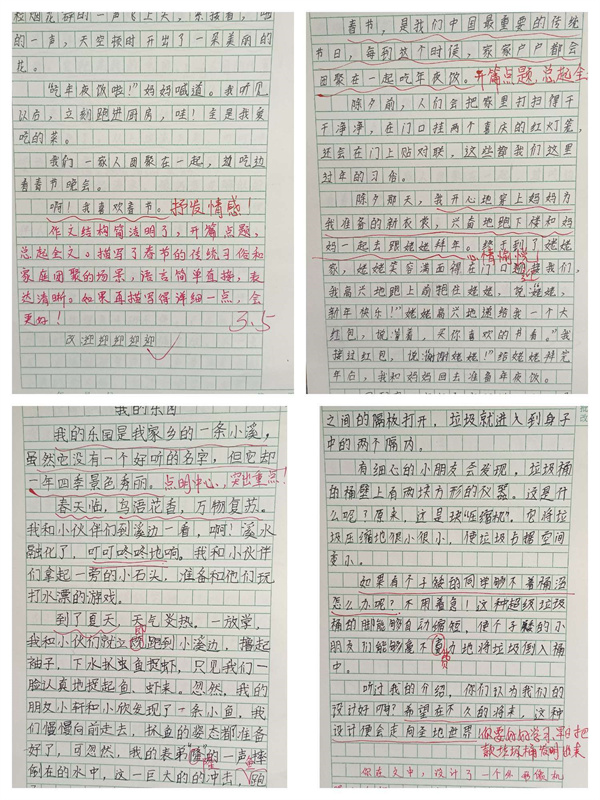 的一声，天空顿时开出了一朵美丽的
花。
"吃年夜饭啦！"妈妈喊道。我听见
以后，立刻跑进厨房，哇！全是我爱
吃的菜。
我们一家人团聚在一起，边吃边
看春节晚会。
啊！我喜欢春节。抒发情感！
作文结构简洁明了，开篇点题，
总起全文。描写了春节的传统习俗和
家庭团聚的场景，语言简单直接，表
达清晰。如果再描写得详细一点，会
更好！
3.5
改迎迎迎迎迎
春节，是我们中国最重要的传统
节日，每到这个时候，家家户户都会
团聚在一起吃年夜饭。开篇点题，总起全
除夕前，人们会把家里打扫得干
干净净，在门口挂两个喜庆的红灯笼，
还会在门上贴对联，这些都我们这里
过年的习俗。
除夕那天，我开心地穿上妈妈为
我准备的新衣裳，兴奋地跑下楼和妈
妈一起去跟姥姥拜年。终于到了姥姥
心情愉悦
家，姥姥笑容满面得在门口接我们，
我高兴地跑上前抱住姥姥，说："姥姥，
新年快乐！"姥姥高兴地递给我一个大
红包，说："拿着，买你喜欢的书看。"我
接过红包，说："谢谢姥姥！"给姥姥拜完
年后，我和妈妈回去准备年夜饭。
我的乐园
我的乐园是我家乡的一条小溪，
虽然它没有一个好听的名字，但它却
一年四季景色秀丽。点明中心，突出重点！
春天临，鸟语花香，万物复苏。
我和小伙伴们到溪边一看，啊！溪水
融化了，叮叮咚咚地响。我和小伙伴
们拿起一旁的小石头，准备和他们玩
打水漂的游戏。
到了夏天，天气炎热。一放学，
我和小伙们就立即跑到小溪边，撸起
袖子，下水抓鱼捉虾，只见我们一
脸认真地捉起鱼、虾来。忽然，我的
朋友小轩和小欣发现了一条小鱼，我
们慢慢向前走去，抓鱼的姿态都准备
好了，可忽然，我的表弟"隆"的一声摔
倒在的水中，这一巨大的的冲击，
之间的隔板打开，垃圾就进入到身子
中的两个隔内。
有细心的小朋友会发现，垃圾桶
的桶壁上有两块方形的仪器。这是什
么呢？原来，这是块"压缩机"，它将垃
圾压缩地很小很小，使垃圾占据空间
变小。
如果有个子矮的同学够不着桶汤
怎么办呢？不用着急！这种超级垃圾
桶的脚能够自动缩短，使个子矮的小
朋友们能够毫不费力地将垃圾倒入桶
中。
听过我的介绍，你们认为我们的
设计好吗？希望在不久的将来，这种
设计便会走向圣地世界 你要好好学习，早日把
款垃圾桶发明出来
你在文中，设计了一个外形像机